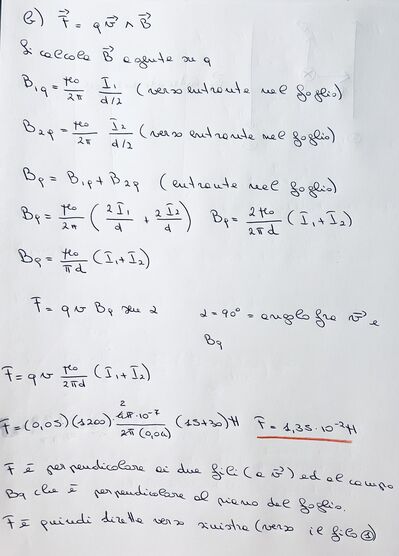 b) F⃗ = q v⃗ ∧ B⃗
Si calcola B⃗ agente su q
B1q = μ0/2π I1/(d/2) (verso entrante nel foglio)
B2q = μ0/2π I2/(d/2) (verso entrante nel foglio)
Bq = B1q + B2q (entrante nel foglio)
Bq = μ0/2π (2I1/d + 2I2/d) Bq = 2μ0/2πd (I1 + I2)
Bq = μ0/πd (I1 + I2)
F = q v Bq sen α α = 90° = angolo fra v⃗ e
Bq
F = q v μ0/2πd (I1 + I2)
F = (0,05) (1200) 4π·10⁻⁷/2π(0,04) (15+30) N F = 1,35·10⁻² N
F è perpendicolare ai due fili (e v⃗) ed al campo
Bq che è perpendicolare al piano del foglio.
F è quindi diretta verso sinistra (verso il filo ①)